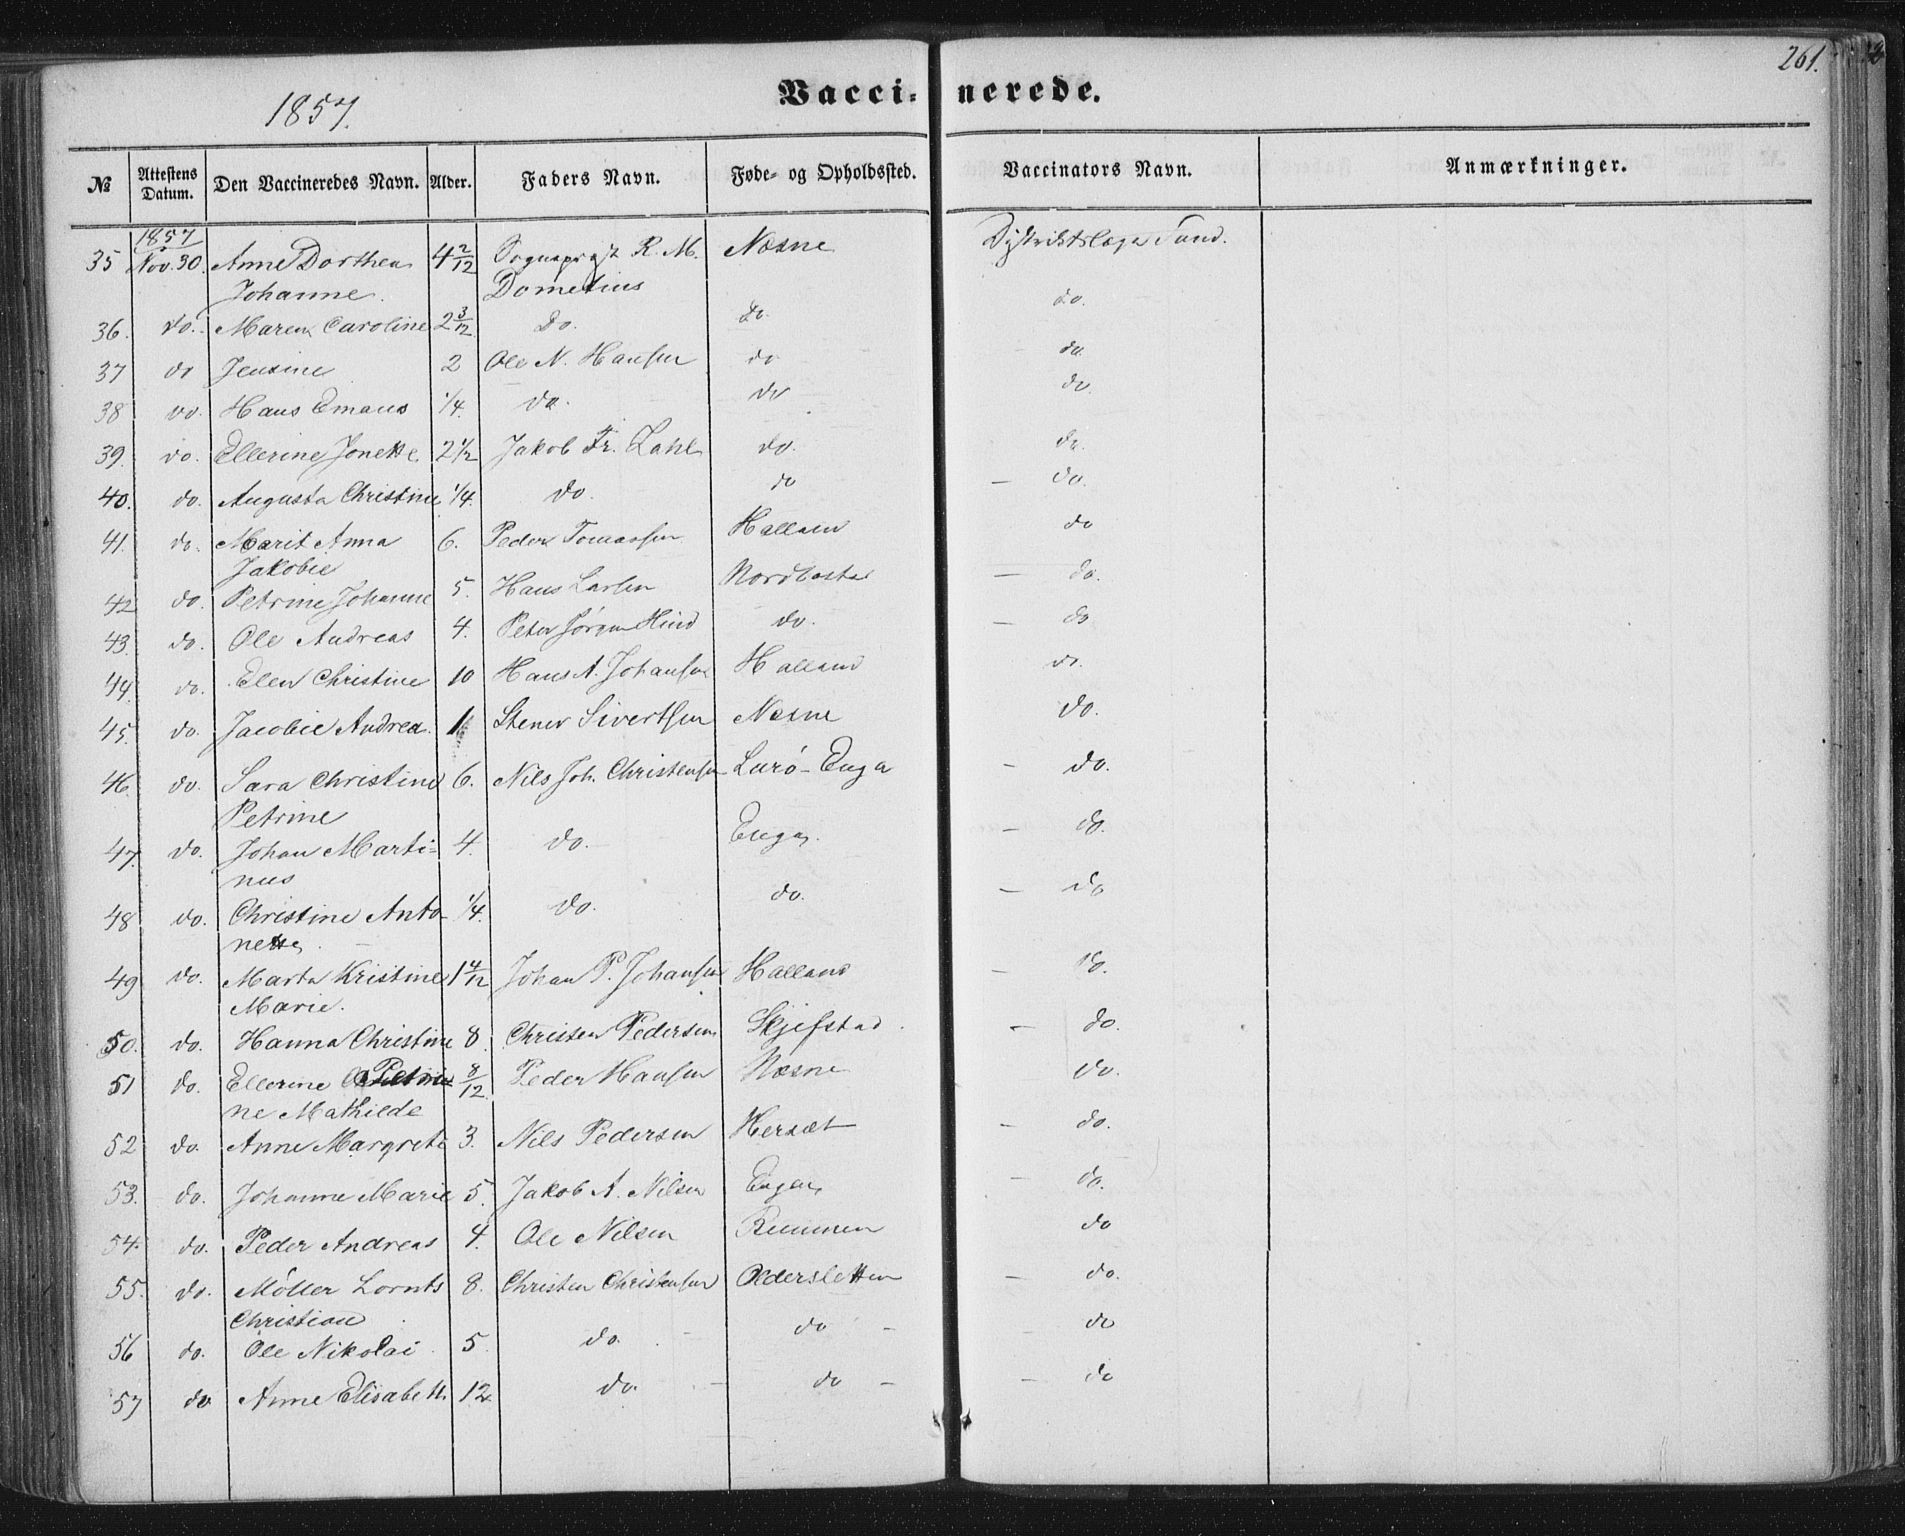 261.
1857.
Vacci- nerede.
№ Attestens Datum. Den Vaccineredes Navn. Alder. Faders Navn. Føde- og Opholdssted. Vaccinators Navn. Anmærkninger.
1857
35 Nov. 30. Anne Dorthea 4 2/12 R. M. Næsne Distriktslæge Sund.
Johanne. Dometius
36. do. Maren Caroline 2 3/12 Do. do. do.
37 do Jensine 2 Ole N. Hansen do - do.
38 do. Hans Emans 1/4. do. do do.
39. do. Ellerine Jonette 2 1/2 Jakob Fr. Zahl do. do.
40. do. Augusta Christine 1/4. do. do - do.
41. do. Marit Anna 6. Peder Tomassen Halland do
Jakobie
42 do. Petrine Johanne 5. Hans Larsen - do.
43. do. Ole Andreas 4. Peter Jørgen Hind do. - do
44. do. Elen Christine 10 Hans A. Johansen Halland do.
45. do. Jacobie Andrea. 1 Stener Sivertsen Næsne do.
46. do. Sara Christine 6. Nils Joh. Christensen Lurø-Enga - do.
Petrine
47. do. Johan Marti- 4. do. Enga. - do.
nus
48 do. Christine Anto- 1/4. do. do. - do
nette.
49 do. Marta Kristine 1 4/12 Johan P. Johansen Halland - do.
Marie.
50. do. Hanna Christine 8. Christen Pedersen Skjefstad. - do.
51 do. Ellerine Petri 8/12 Peder Hansen Næsne do.
ne Mathilde
52 do. Anne Margrete 3. Nils Pedersen Hersæt - do.
53. do. Johanne Marie 5. Jakob A. Nilsen Engen - do.
54. do. Peder Andreas 4. Ole Nilsen Remmen do
55. do. Møller Lornts 8. Christen Christensen Olderskletten - do.
Christian
56 do. Ole Nikolai 5. do. - do - - do
57 do Anne Elisabeth. 12. do. - do - - do